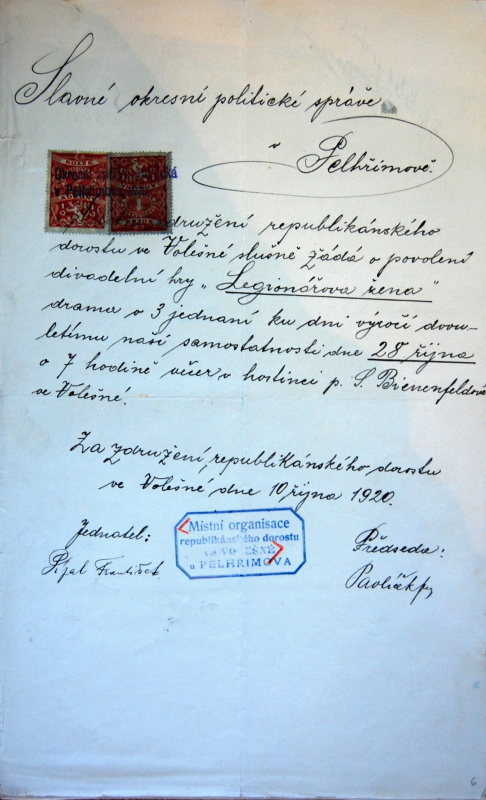 Slavné okresní politické správě
v Pelhřimově.
KOLEK
Okresní
v Pelhřimově
združení republikánského
dorostu ve Volešné slušně žádá o povolení
divadelní hry „Legionářova žena"
drama o 3 jednaní ku dni výročí dvou-
letému naší samostatnosti dne 28 října
o 7 hodině večer v hostinci p. S. Bienenfeldové
ve Volešné.
Za združení republikánského dorostu
ve Volešné dne 10 října 1920.
Jednatel:
František
Místní organisace
republikánského dorostu
u PELHŘIMOVA
Předseda:
Pavlíček
6